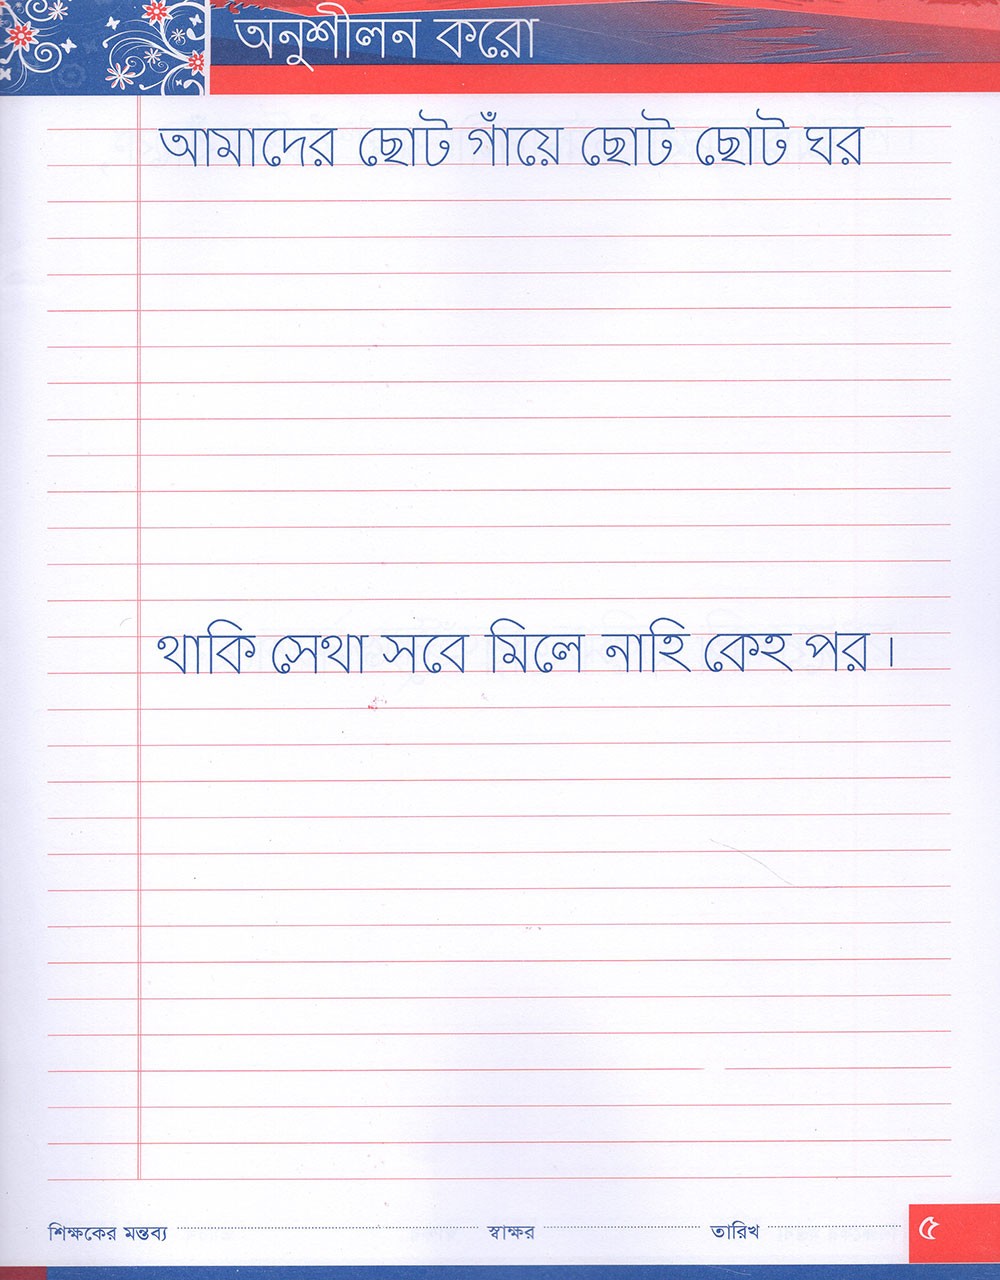 অনুশীলন করো
আমাদের ছোট গাঁয়ে ছোট ছোট ঘর
থাকি সেথা সবে মিলে নাহি কেহ পর।
শিক্ষকের মন্তব্য স্বাক্ষর তারিখ ৫